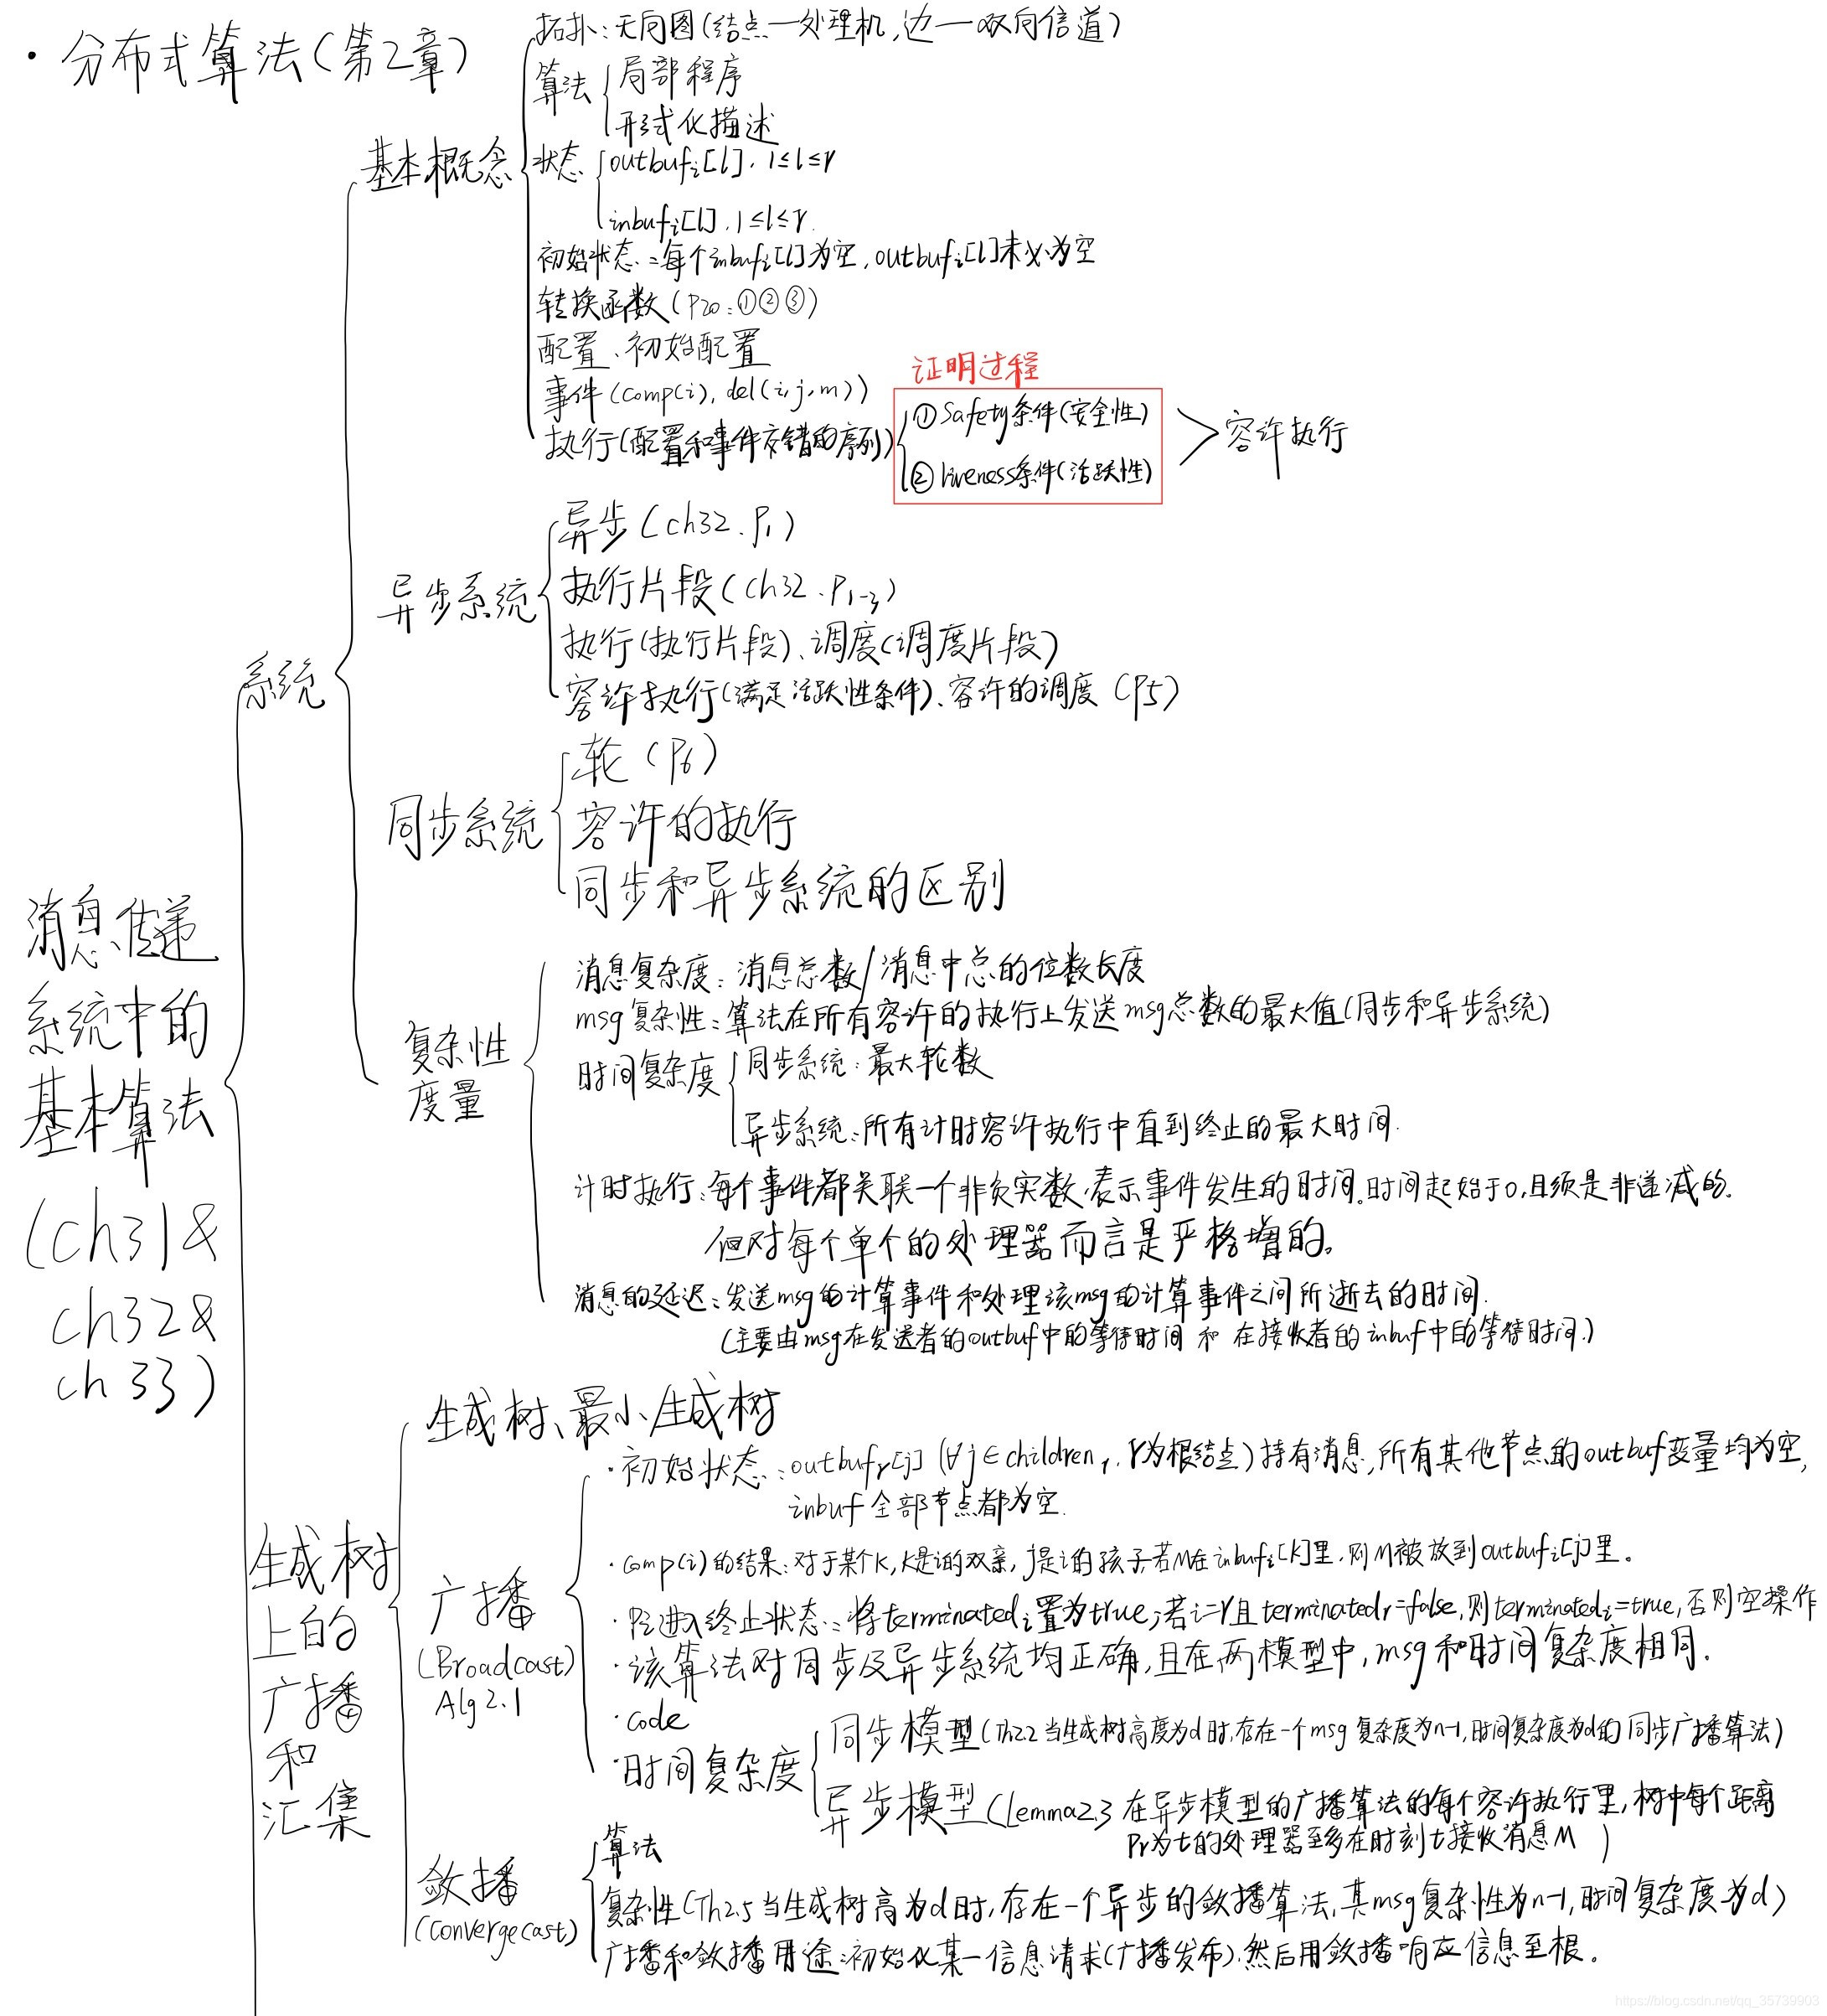 · 分布式算法(第2章)
拓扑:无向图(结点一处理机,边一双向信道)
算法
局部程序
形式化描述
基本概念
状态
outbufi[l], 1≤l≤r
inbufi[l], 1≤l≤r.
初始状态:每个inbufi[l]为空,outbufi[l]未必为空
转换函数(P20:①②③)
配置、初始配置
事件(comp(i), del(i,j,m))
执行(配置和事件交错的序列)
证明过程
①Safety条件(安全性)
②liveness条件(活跃性)
容许执行
系统
异步系统
异步(ch32.P1)
执行片段(ch32.P1-3)
执行(执行片段)、调度(调度片段)
容许执行(满足活跃性条件)、容许的调度(P5)
同步系统
轮(P6)
容许的执行
同步和异步系统的区别
消息传递
系统中的
基本算法
(ch31&
ch32&
ch33)
复杂性
度量
消息复杂度:消息总数/消息中总的位数长度
msg复杂性:算法在所有容许的执行上发送msg总数的最大值(同步和异步系统)
时间复杂度
同步系统:最大轮数
异步系统:所有计时容许执行中直到终止的最大时间.
计时执行:每个事件都关联一个非负实数,表示事件发生的时间。时间起始于0,且须是非递减的.
但对每个单个的处理器而言是严格增的。
消息的延迟:发送msg的计算事件和处理该msg的计算事件之间所逝去的时间.
(主要由msg在发送者的outbuf中的等待时间 和 在接收者的inbuf中的等待时间.)
生成树
上的
广播
和
汇集
生成树、最小生成树
广播
(Broadcast)
Alg2.1
·初始状态:outbufr[j] (∀j∈childrenr, r为根结点)持有消息,所有其他节点的outbuf变量均为空,
inbuf全部节点都为空.
·comp(i)的结果:对于某个K,K是i的双亲,j是i的孩子,若M在inbufi[K]里,则M被放到outbufi[j]里。
·Pi进入终止状态:将terminatedi置为true;若i=r且terminatedr=false,则terminatedi=true,否则空操作
·该算法对同步及异步系统均正确,且在两模型中,msg和时间复杂度相同.
·code
·时间复杂度
同步模型(Th2.2 当生成树高度为d时,存在一个msg复杂度为n-1,时间复杂度为d的同步广播算法)
异步模型(Lemma2.3 在异步模型的广播算法的每个容许执行里,树中每个距离
Pr为t的处理器至多在时刻t接收消息M )
敛播
(Convergecast)
算法
复杂性(Th2.5当生成树高为d时,存在一个异步的敛播算法,其msg复杂性为n-1,时间复杂度为d)
广播和敛播用途:初始化某一信息请求(广播发布),然后用敛播响应信息至根。
https://blog.csdn.net/qq_35739903